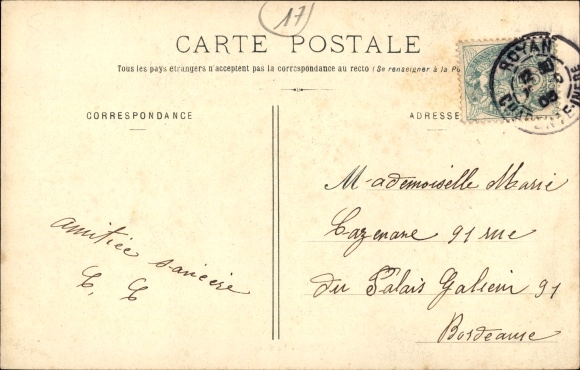 17
CARTE POSTALE
Tous les pays étrangers n'acceptent pas la correspondance au recto (Se renseigner à la Po
CORRESPONDANCE
ADRESSE
ROYAN
Mademoiselle Marie
Cazenave 91 rue
du Palais Galien 91
Bordeaux
amitiée sincère
C. C